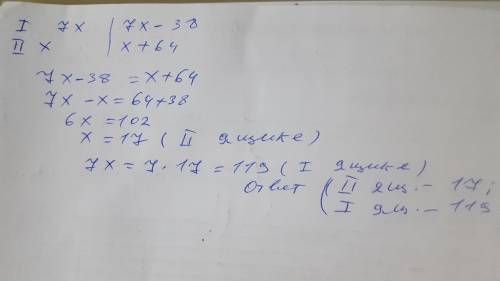 I 7x | 7x-38
II x | x+64
7x-38 = x+64
7x-x=64+38
6x=102
x=17 ( II ящике)
7x=7·17=119 ( I ящике)
Ответ ( II ящ. - 17;
I ящ. - 119